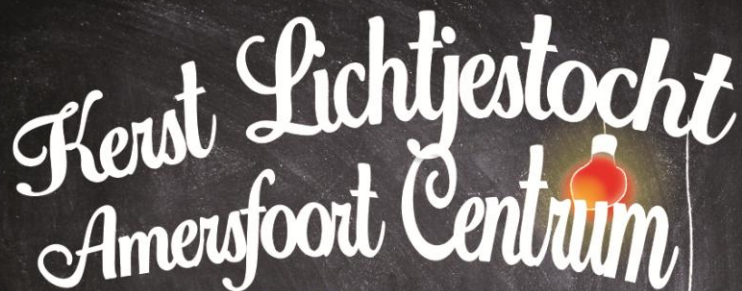 Kerst Lichtjestocht
Amersfoort Centrum